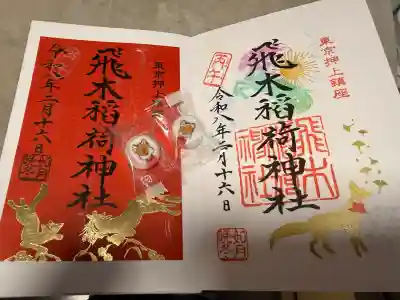 東京押上鎮座
飛木稲荷神社
丙午
令和八年二月十六日
飛木
稲荷
神社
如月
東京押上
飛木稲荷神社
令和八年二月十六日
如月